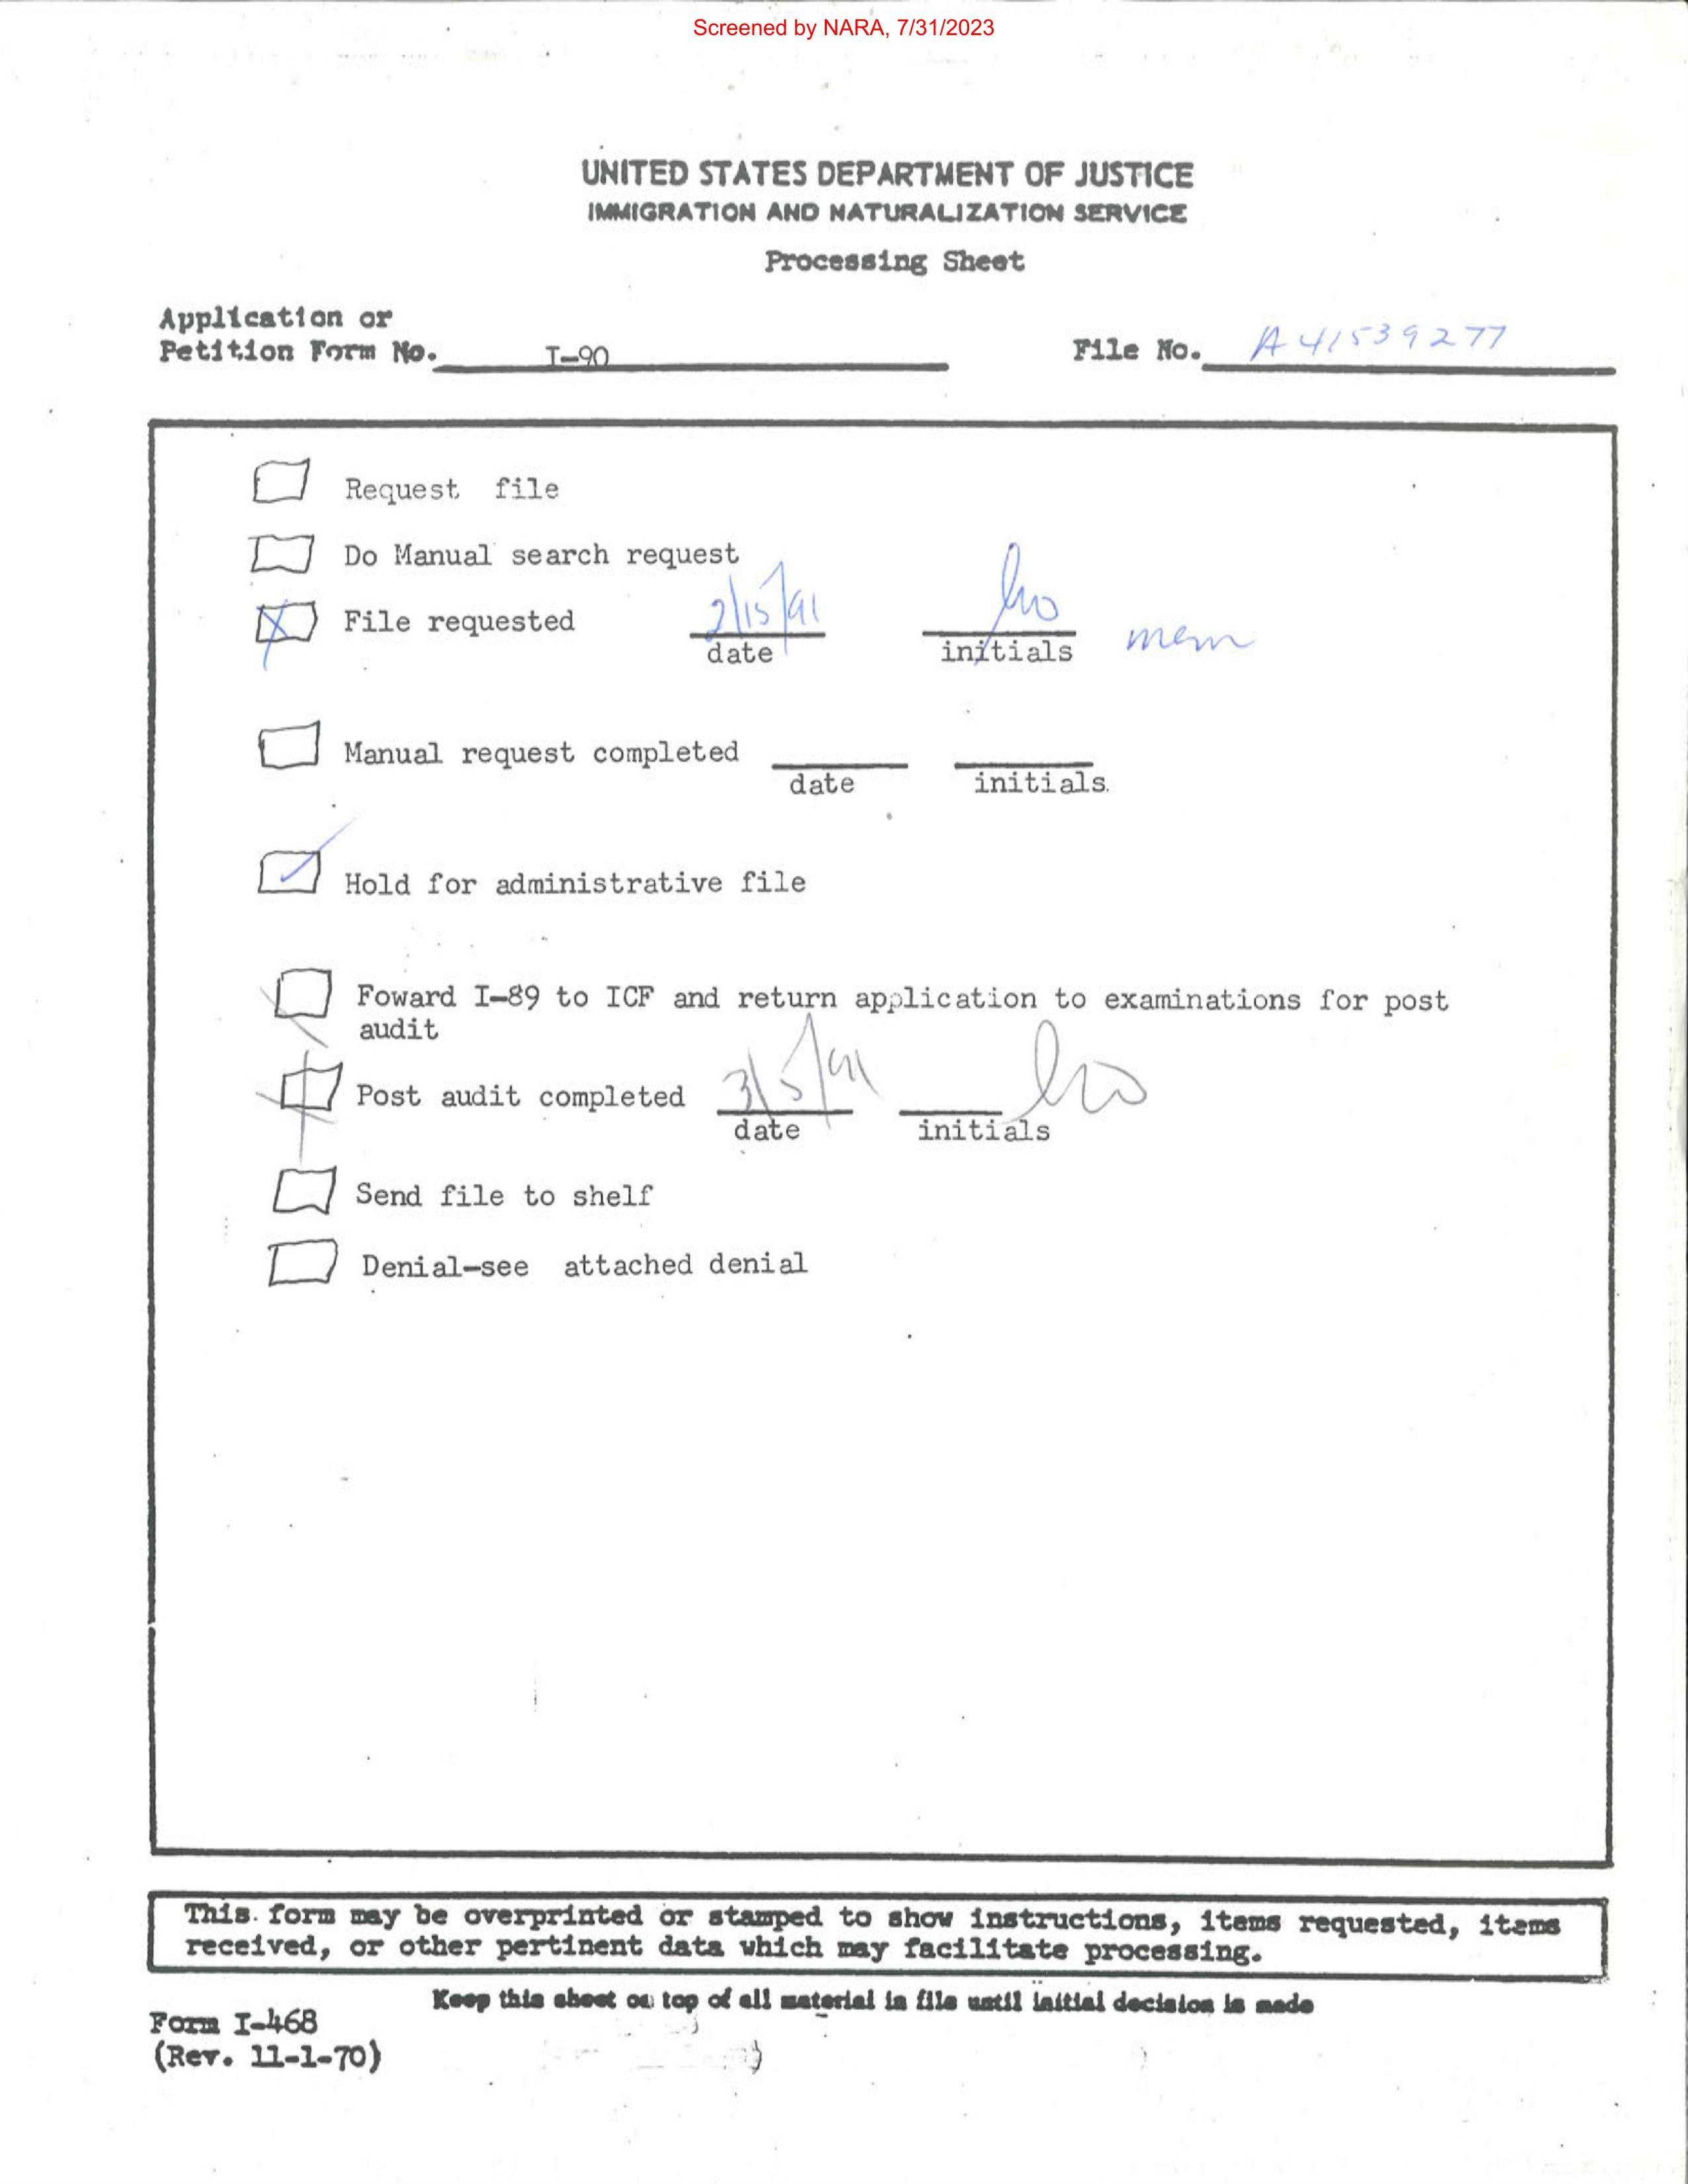 Screened by NARA, 7/31/2023
UNITED STATES DEPARTMENT OF JUSTICE
IMMIGRATION AND NATURALIZATION SERVICE
Processing Sheet
Application or
Petition Form No. I-90 File No. A 41539277
Request file
Do Manual search request
File requested 2/15/91
date initials mem
Manual request completed
date initials.
Hold for administrative file
Foward I-89 to ICF and return application to examinations for post
audit
Post audit completed 3/5/91
date initials
Send file to shelf
Denial-see attached denial
This form may be overprinted or stamped to show instructions, items requested, items
received, or other pertinent data which may facilitate processing.
Keep this sheet on top of all material in file until initial decision is made
Form I-468
(Rev. 11-1-70)